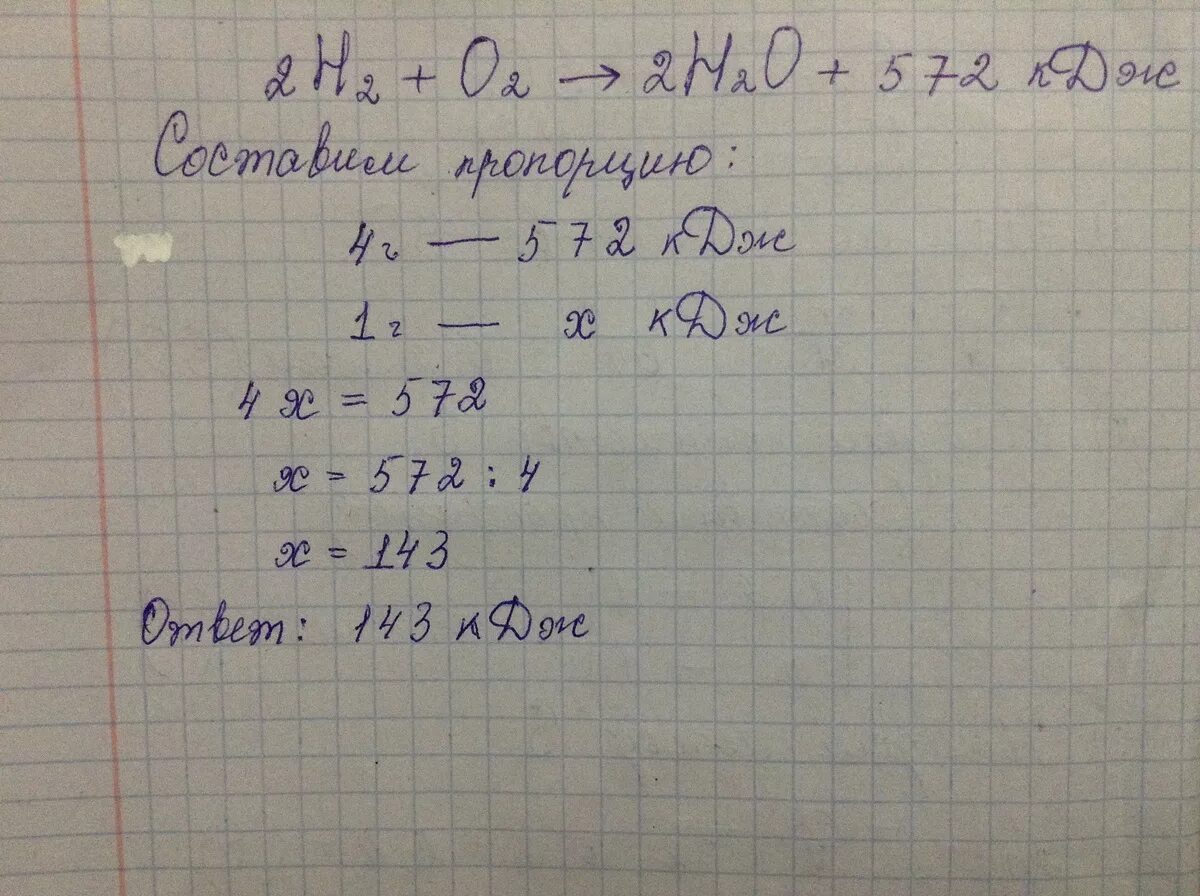 2H₂ + O₂ → 2H₂O + 572 кДж
Составим пропорцию:
4г — 572 кДж
1г — x кДж
4x = 572
x = 572 : 4
x = 143
Ответ: 143 кДж